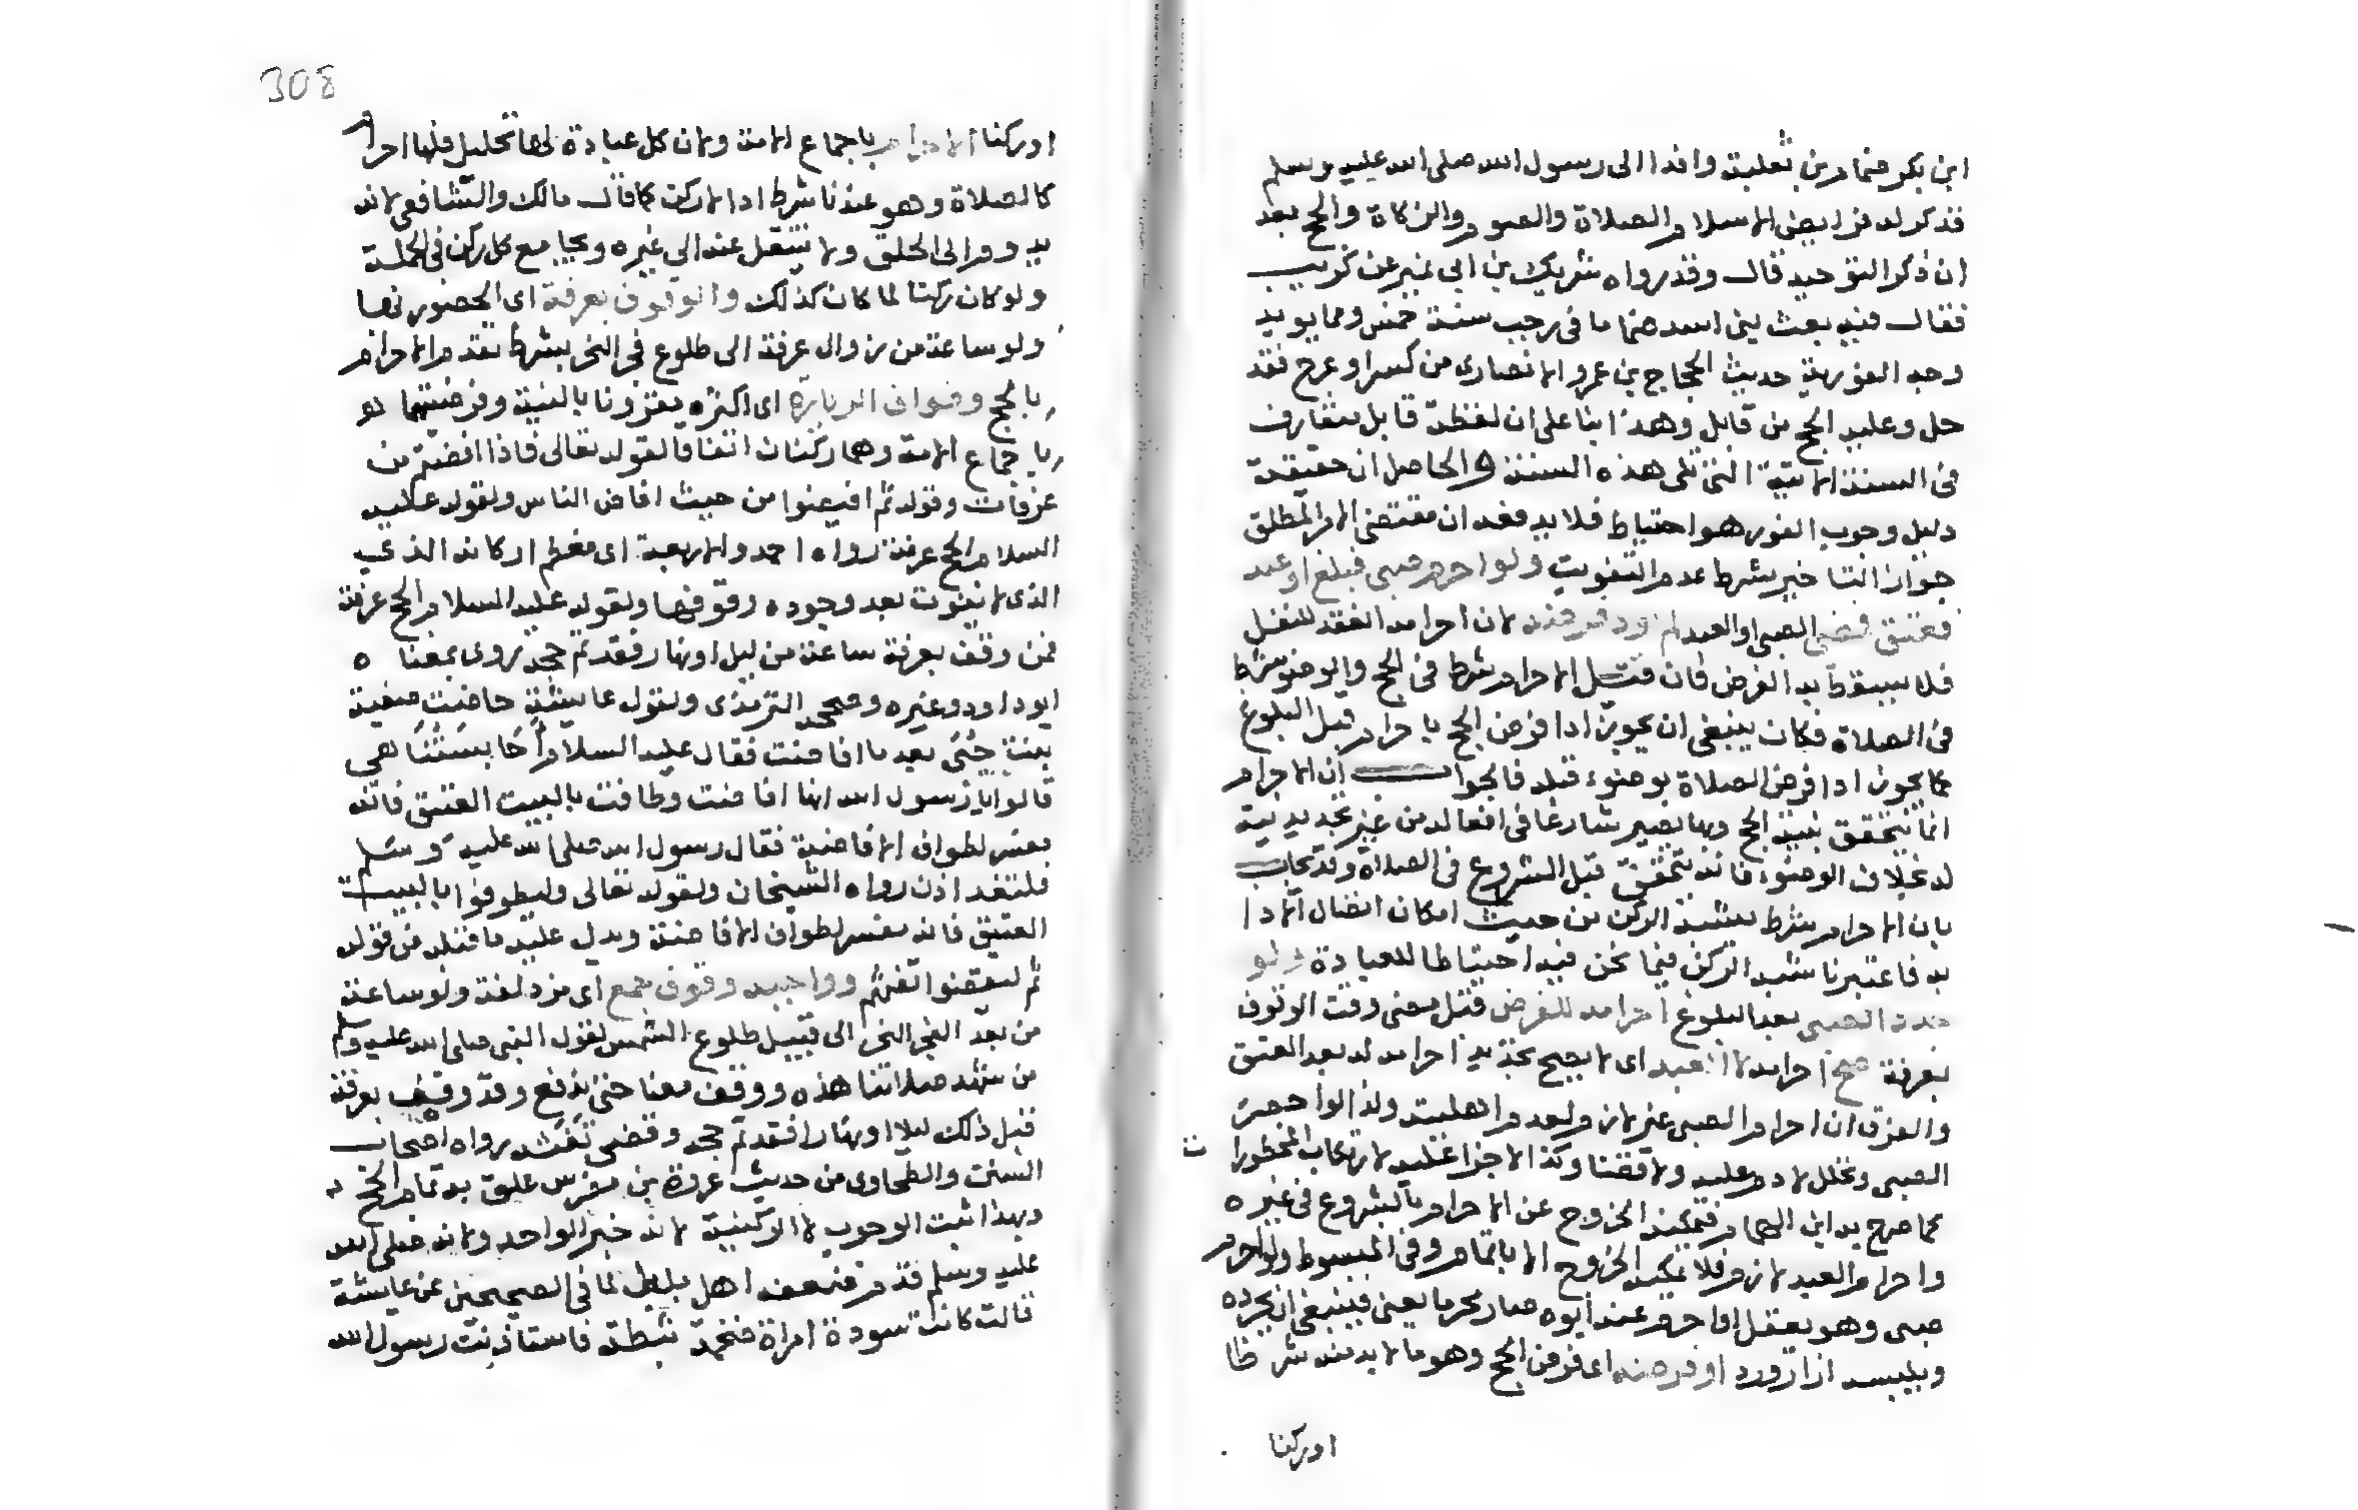 ابن بكر ضمام بن ثعلبة وافدا الى رسول الله صلى الله عليه وسلم
فذكر له فرايض الاسلام الصلاة والصوم والزكاة والحج بعد
ان ذكر التوحيد قال وقد رواه شريك بن ابى نمر عن كريب
فقال فيه بعث بنى اسد ضماما فى رجب سنة خمس ومما يويد
وجه الفورية حديث الحجاج بن عمرو الانصارى من كسر او عرج فقد
حل وعليه الحج من قابل وهذا بنا على ان لفظة قابل متعارف
فى السنة الاتية التى تلى هذه السنة والحاصل ان حقيقة
دليل وجوب الفور هو احتياط فلا يدفعه ان مقتضى الامر المطلق
جواز التاخير بشرط عدم التفويت ولو احرم صبى فبلغ او عبد
فعتق فمضى الصبى او العبد لم يود فرضه لان احرامه انعقد للنفل
فلا يسقط به الفرض فان قيل الاحرام شرط فى الحج والوضو شرط
فى الصلاة فكان ينبغى ان يجوز ادا فرض الحج باحرام قبل البلوغ
كما يجوز ادا فرض الصلاة بوضوء قبله فالجواب ان الاحرام
انما يتحقق بنية الحج وبها يصير شارعا فى افعاله من غير تجديد نية
له بخلاف الوضوء فانه يتحقق قبل الشروع فى الصلاة وقد يجاب
بان الاحرام شرط يشبه الركن من حيث امكان اتصال الادا
به فاعتبرنا شبه الركن فيما نحن فيه احتياطا للعبادة ولو
جدد الصبى بعد البلوغ احرامه للفرض قبل مضى وقت الوقوف
بعرفة صح احرامه لا العبد اى لا يصح تجديد احرامه له بعد العتق
والفرق ان احرام الصبى غير لازم لعدم اهليته ولذا لو احصر
الصبى وتحلل لا دم عليه ولا قضا وكذا لا جزا عليه لارتكاب المحظورات
كما صرح به ابن الهمام فيمكنه الخروج عن الاحرام بالشروع فى غيره
واحرام العبد لازم فلا يمكنه الخروج الا باتمام وفى المبسوط ولو احرم
صبى وهو يعقل او احرم عنه ابوه صار محرما يعنى فينبغى ان يجرده
ويلبسه ازارا وردا وفرضه اى فرض الحج وهو ما لا بد منه شرطا
اوركنا
308
اوركنا الاحرام باجماع الامة ولان كل عبادة لها تحليل فلها احرام
كالصلاة وهو عندنا شرط ادا لا ركن كما قال مالك والشافعى لانه
يدوم الى الحلق ولا ينتقل عنه الى غيره ويجامع كل ركن فى الجملة
ولو كان ركنا لما كان كذلك والوقوف بعرفة اى الحضور فيها
ولو ساعة من زوال عرفة الى طلوع فجر النحر بشرط تقدم الاحرام
بالحج وطواف الزيارة اى اكثره مقرونا بالنية وفرضيتهما
باجماع الامة وهما ركنان اتفاقا لقوله تعالى فاذا افضتم من
عرفات وقوله ثم افيضوا من حيث افاض الناس ولقوله عليه
السلام الحج عرفة رواه احمد والاربعة اى معظم اركانه الذي
الذى لا يفوت بعد وجوده وقوفها ولقوله عليه السلام الحج عرفة
فمن وقف بعرفة ساعة من ليل او نهار فقد تم حجه روى بمعناه
ابو داود وغيره وصححه الترمذى ولقول عايشة حاضت صفية
بنت حيى بعد ما افاضت فقال عليه السلام احابستنا هى
قالوا يا رسول الله انها افاضت وطافت بالبيت العتيق فانه
مفسر لطواف الافاضة فقال رسول الله صلى الله عليه وسلم
فلتنفر اذن رواه الشيخان ولقوله تعالى وليطوفوا بالبيت
العتيق فانه مفسر لطواف الافاضة ويدل عليه ما قبله من قوله
ثم ليقضوا تفثهم وواجبه وقوف جمع اى مزدلفة ولو ساعة
من بعد الفجر النحر الى قبيل طلوع الشمس لقول النبى صلى الله عليه وسلم
من شهد صلاتنا هذه ووقف معنا حتى يدفع وقد وقف بعرفة
قبل ذلك ليلا او نهارا فقد تم حجه وقضى تفثه رواه اصحاب
السنن والطحاوى من حديث عروة بن مضرس علق به تمام الحج
وبهذا ثبت الوجوب لا الركنية لانه خبر الواحد ولانه صلى الله
عليه وسلم قدم ضعفه اهل بليل لما فى الصحيحين عن عايشة
قالت كانت سودة امراة ضخمة ثبطة فاستاذنت رسول الله